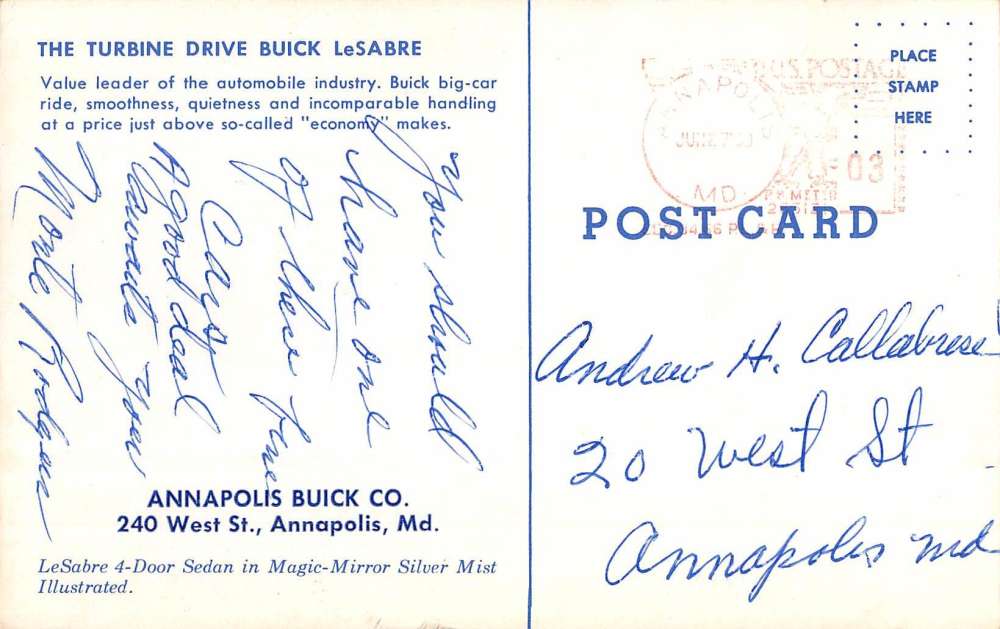 THE TURBINE DRIVE BUICK LeSABRE
Value leader of the automobile industry. Buick big-car
ride, smoothness, quietness and incomparable handling
at a price just above so-called "economy" makes.
You should
have one
of these fine
Cars
A good deal
awaits you
Monte Rodgers
ANNAPOLIS BUICK CO.
240 West St., Annapolis, Md.
LeSabre 4-Door Sedan in Magic-Mirror Silver Mist
Illustrated.
PLACE
STAMP
HERE
U.S. POSTAGE
ANNAPOLIS
MD
03
P.B. METER
POST CARD
Andrew H. Callabrese
20 West St
Annapolis Md